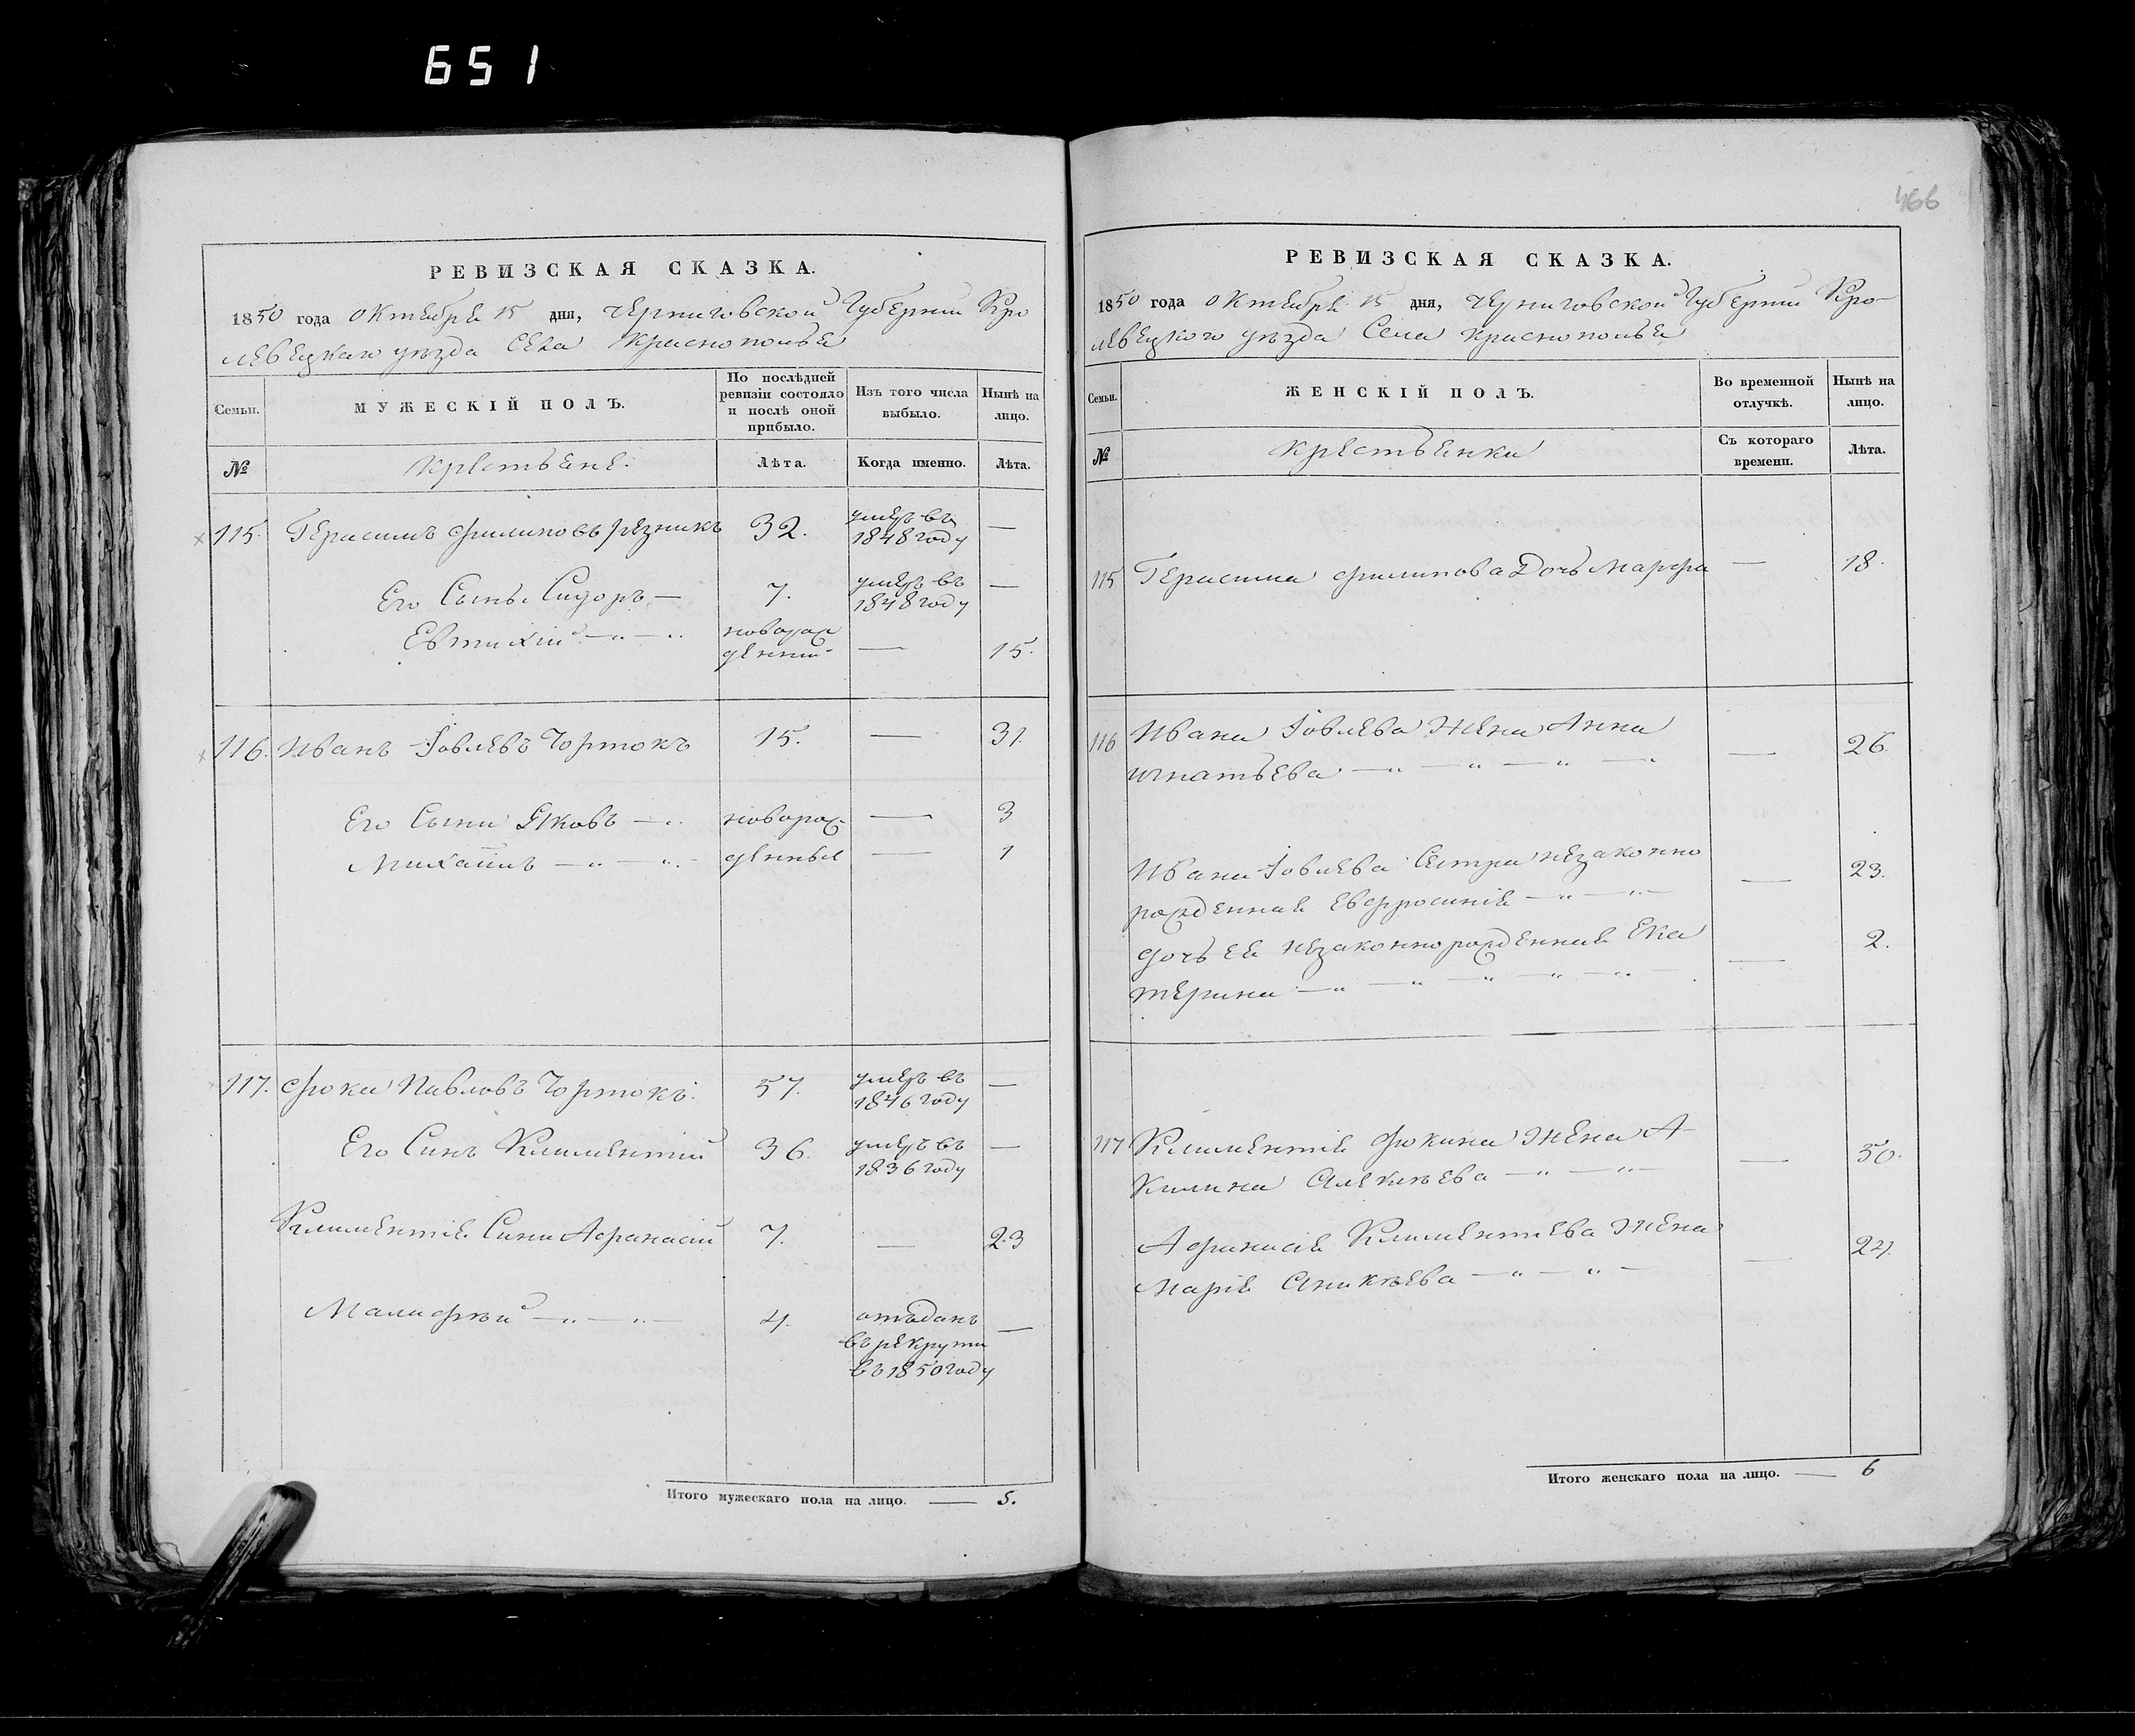 651
466
РЕВИЗСКАЯ СКАЗКА.
1850 года октября 15 дня, Черниговской Губернии Кро
левецкаго уѣзда Села Краснополья
Семьи.
МУЖЕСКІЙ ПОЛЪ.
По послѣдней
ревизіи состояло
и послѣ оной
прибыло.
Изъ того числа
выбыло.
Нынѣ на
лицо.
№
Крестьяне.
Лѣта.
Когда именно.
Лѣта.
115. Герасимъ Филиповъ Рѣзникъ 32. умеръ въ —
1848 году
Его Сынъ Сидоръ — 7. умеръ въ —
1848 году
Евтихій — " — " новорож
денній — 15.
116. Иванъ Іовлевъ Чортокъ 15. — 31.
Его Сыни Яковъ — " новорож — 3
Михаилъ — " — " — денные — 1
117. Фока Павловъ Чортокъ. 57. умеръ въ —
1846 году
Его Синъ Климентій 36. умеръ въ —
1836 году
Климентія Сини Афанасій 7. — 23
— " — " — 4. отъданъ —
въ рекрути
въ 1850 году
Итого мужескаго пола на лицо. — 5.
РЕВИЗСКАЯ СКАЗКА.
1850 года октября 15 дня, Черниговской Губерніи Кро-
левецкого уѣзда Села Краснополья
Семьи.
ЖЕНСКІЙ ПОЛЪ.
Во временной
отлучкѣ.
Нынѣ на
лицо.
№
Крестьянки
Съ котораго
времени.
Лѣта.
115 Герасима Филипова Дочь Марфа — 18.
116 Ивана Іовлева Жена Анна
Игнатьева — " — " — " — " — 26.
Ивана Іовлева Сестра незаконно
рожденная Евфросинія — " — " — — 23.
дочь ея незаконнорожденная Ека
терина — " — " — " — " — — 2.
117 Климентія Фокина Жена А-
килина — " — " — — 50.
Афанасія Климентіева Жена
Марія Аникѣева — " — " — — 24.
Итого женскаго пола на лицо. — 6